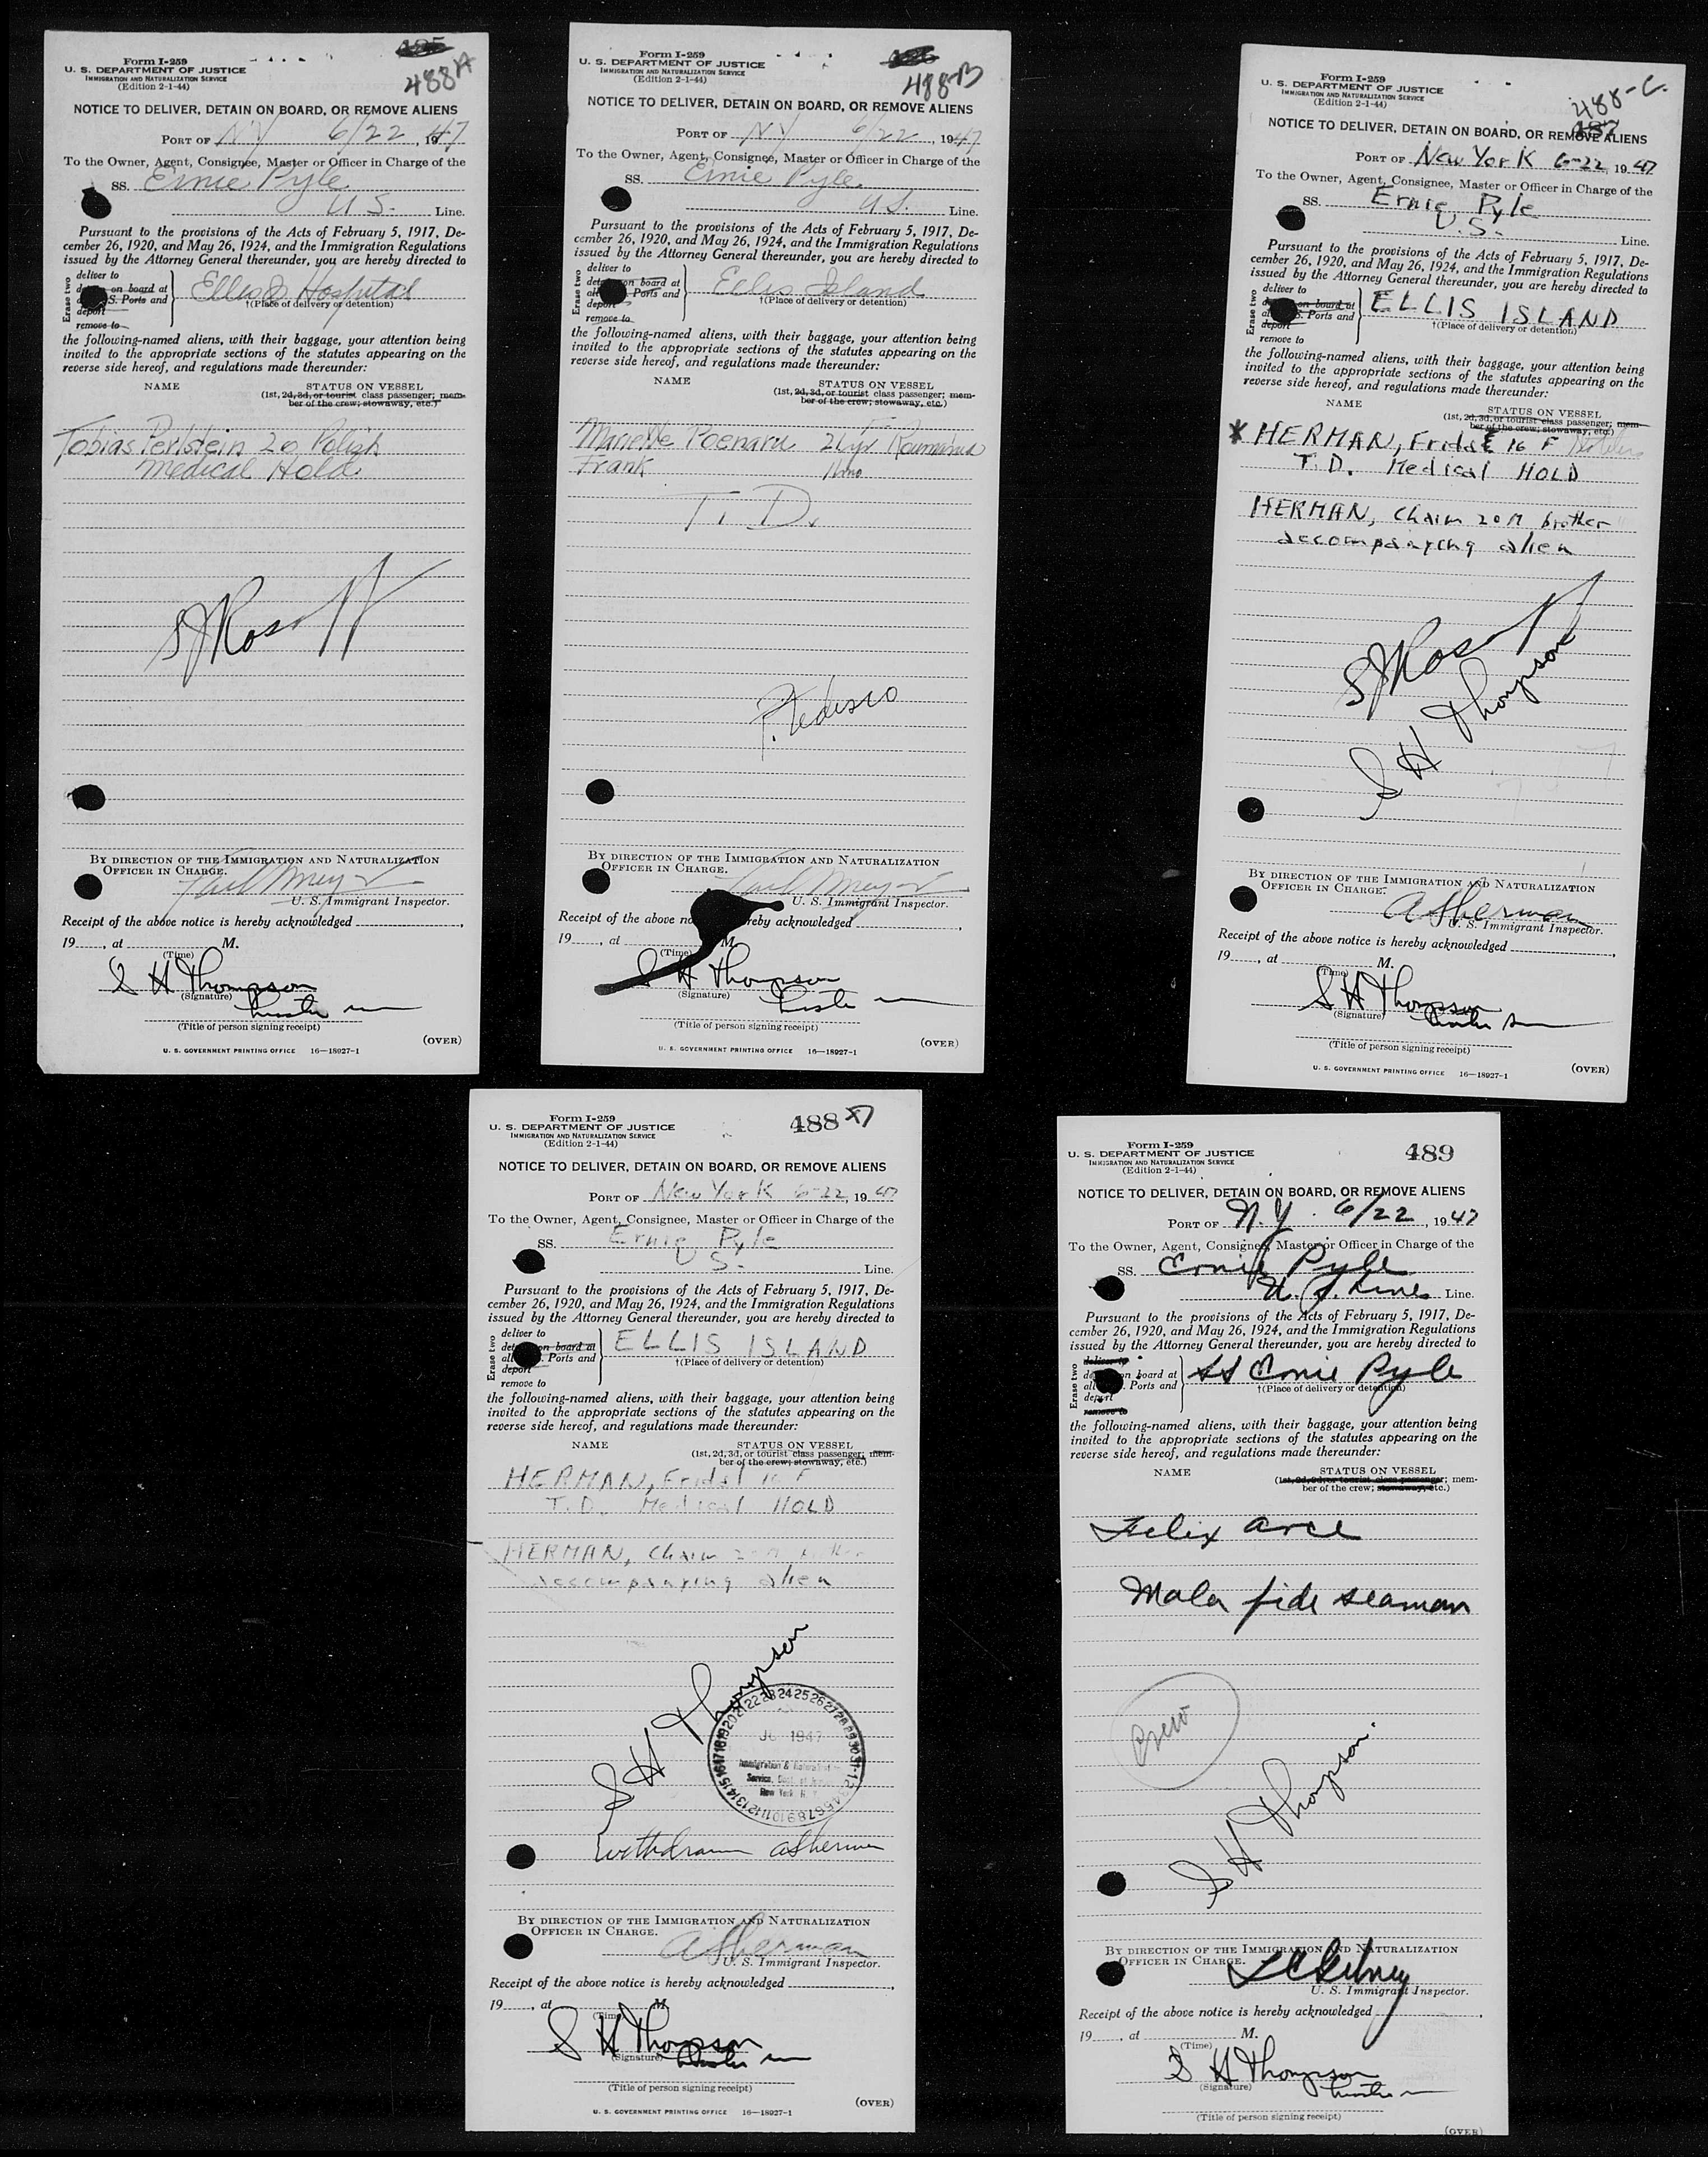 488A
Form I-259
U. S. DEPARTMENT OF JUSTICE
IMMIGRATION AND NATURALIZATION SERVICE
(Edition 2-1-44)
NOTICE TO DELIVER, DETAIN ON BOARD, OR REMOVE ALIENS
PORT OF NY 6/22, 1947
To the Owner, Agent, Consignee, Master or Officer in Charge of the
SS. Ernie Pyle
U S. Line.
Pursuant to the provisions of the Acts of February 5, 1917, De-
cember 26, 1920, and May 26, 1924, and the Immigration Regulations
issued by the Attorney General thereunder, you are hereby directed to
Erase two
deliver to
on board at
S. Ports and
deport
remove to
Ellis Hospital
†(Place of delivery or detention)
the following-named aliens, with their baggage, your attention being
invited to the appropriate sections of the statutes appearing on the
reverse side hereof, and regulations made thereunder:
NAME STATUS ON VESSEL
(1st, 2d, 3d, or tourist class passenger; mem-
ber of the crew; stowaway, etc.)
Tobias Perlstein 20 Polish
Medical Hold
BY DIRECTION OF THE IMMIGRATION AND NATURALIZATION
OFFICER IN CHARGE.
U. S. Immigrant Inspector.
Receipt of the above notice is hereby acknowledged
19, at M.
(Time)
S H Thompson
(Signature)
(Title of person signing receipt)
(OVER)
U. S. GOVERNMENT PRINTING OFFICE 16—18927-1
488-B
Form I-259
U. S. DEPARTMENT OF JUSTICE
IMMIGRATION AND NATURALIZATION SERVICE
(Edition 2-1-44)
NOTICE TO DELIVER, DETAIN ON BOARD, OR REMOVE ALIENS
PORT OF NY 6/22, 1947
To the Owner, Agent, Consignee, Master or Officer in Charge of the
SS. Ernie Pyle
U S. Line.
Pursuant to the provisions of the Acts of February 5, 1917, De-
cember 26, 1920, and May 26, 1924, and the Immigration Regulations
issued by the Attorney General thereunder, you are hereby directed to
Erase two
deliver to
on board at
Ports and
deport
remove to
Ellis Island
†(Place of delivery or detention)
the following-named aliens, with their baggage, your attention being
invited to the appropriate sections of the statutes appearing on the
reverse side hereof, and regulations made thereunder:
NAME STATUS ON VESSEL
(1st, 2d, 3d, or tourist class passenger; mem-
ber of the crew; stowaway, etc.)
Marielle Poenaru
Frank
T. D.
P. Tedesco
BY DIRECTION OF THE IMMIGRATION AND NATURALIZATION
OFFICER IN CHARGE.
U. S. Immigrant Inspector.
Receipt of the above no reby acknowledged
19, at M.
(Time)
S H Thompson
(Signature)
(Title of person signing receipt)
(OVER)
U. S. GOVERNMENT PRINTING OFFICE 16—18927-1
488-C.
Form I-259
U. S. DEPARTMENT OF JUSTICE
IMMIGRATION AND NATURALIZATION SERVICE
(Edition 2-1-44)
NOTICE TO DELIVER, DETAIN ON BOARD, OR REMOVE ALIENS
PORT OF New York 6-22, 1947
To the Owner, Agent, Consignee, Master or Officer in Charge of the
SS. Ernie Pyle
U.S. Line.
Pursuant to the provisions of the Acts of February 5, 1917, De-
cember 26, 1920, and May 26, 1924, and the Immigration Regulations
issued by the Attorney General thereunder, you are hereby directed to
Erase two
deliver to
on board at
Ports and
deport
remove to
ELLIS ISLAND
†(Place of delivery or detention)
the following-named aliens, with their baggage, your attention being
invited to the appropriate sections of the statutes appearing on the
reverse side hereof, and regulations made thereunder:
NAME STATUS ON VESSEL
(1st, 2d, 3d, or tourist class passenger; mem-
ber of the crew; stowaway, etc.)
HERMAN, Frida 16 F
T. D. Medical HOLD
HERMAN, Chaim 20 M brother
accompanying alien
S H Thompson
BY DIRECTION OF THE IMMIGRATION AND NATURALIZATION
OFFICER IN CHARGE.
A Sherman
U. S. Immigrant Inspector.
Receipt of the above notice is hereby acknowledged
19, at M.
(Time)
S H Thompson
(Signature)
(Title of person signing receipt)
U. S. GOVERNMENT PRINTING OFFICE 16—18927-1 (OVER)
488
Form I-259
U. S. DEPARTMENT OF JUSTICE
IMMIGRATION AND NATURALIZATION SERVICE
(Edition 2-1-44)
NOTICE TO DELIVER, DETAIN ON BOARD, OR REMOVE ALIENS
PORT OF New York 6-22, 1947
To the Owner, Agent, Consignee, Master or Officer in Charge of the
SS. Ernie Pyle
U S. Line.
Pursuant to the provisions of the Acts of February 5, 1917, De-
cember 26, 1920, and May 26, 1924, and the Immigration Regulations
issued by the Attorney General thereunder, you are hereby directed to
Erase two
deliver to
on board at
Ports and
deport
remove to
ELLIS ISLAND
†(Place of delivery or detention)
the following-named aliens, with their baggage, your attention being
invited to the appropriate sections of the statutes appearing on the
reverse side hereof, and regulations made thereunder:
NAME STATUS ON VESSEL
(1st, 2d, 3d, or tourist class passenger; mem-
ber of the crew; stowaway, etc.)
HERMAN, Frida 16 F
T. D. Medical HOLD
HERMAN, Chaim
accompanying alien
S H Thompson
1947
Immigration &
Service, Dept. of
New York N. Y.
withdrawn A Sherman
BY DIRECTION OF THE IMMIGRATION AND NATURALIZATION
OFFICER IN CHARGE.
A Sherman
U. S. Immigrant Inspector.
Receipt of the above notice is hereby acknowledged
19, at M.
(Time)
S H Thompson
(Signature)
(Title of person signing receipt)
(OVER)
U. S. GOVERNMENT PRINTING OFFICE 16—18927-1
489
Form I-259
U. S. DEPARTMENT OF JUSTICE
IMMIGRATION AND NATURALIZATION SERVICE
(Edition 2-1-44)
NOTICE TO DELIVER, DETAIN ON BOARD, OR REMOVE ALIENS
PORT OF N. Y. 6/22, 1947
To the Owner, Agent, Consignee, Master or Officer in Charge of the
SS. Ernie Pyle
U. S. Lines Line.
Pursuant to the provisions of the Acts of February 5, 1917, De-
cember 26, 1920, and May 26, 1924, and the Immigration Regulations
issued by the Attorney General thereunder, you are hereby directed to
Erase two
deliver to
on board at
Ports and
deport
remove to
SS Ernie Pyle
†(Place of delivery or detention)
the following-named aliens, with their baggage, your attention being
invited to the appropriate sections of the statutes appearing on the
reverse side hereof, and regulations made thereunder:
NAME STATUS ON VESSEL
(1st, 2d, 3d, or tourist class passenger; mem-
ber of the crew; stowaway, etc.)
Felix Arce
Mala fide seaman
Crew
S H Thompson
BY DIRECTION OF THE IMMIGRATION AND NATURALIZATION
OFFICER IN CHARGE.
U. S. Immigrant Inspector.
Receipt of the above notice is hereby acknowledged
19, at M.
(Time)
S H Thompson
(Signature)
(Title of person signing receipt)
(OVER)